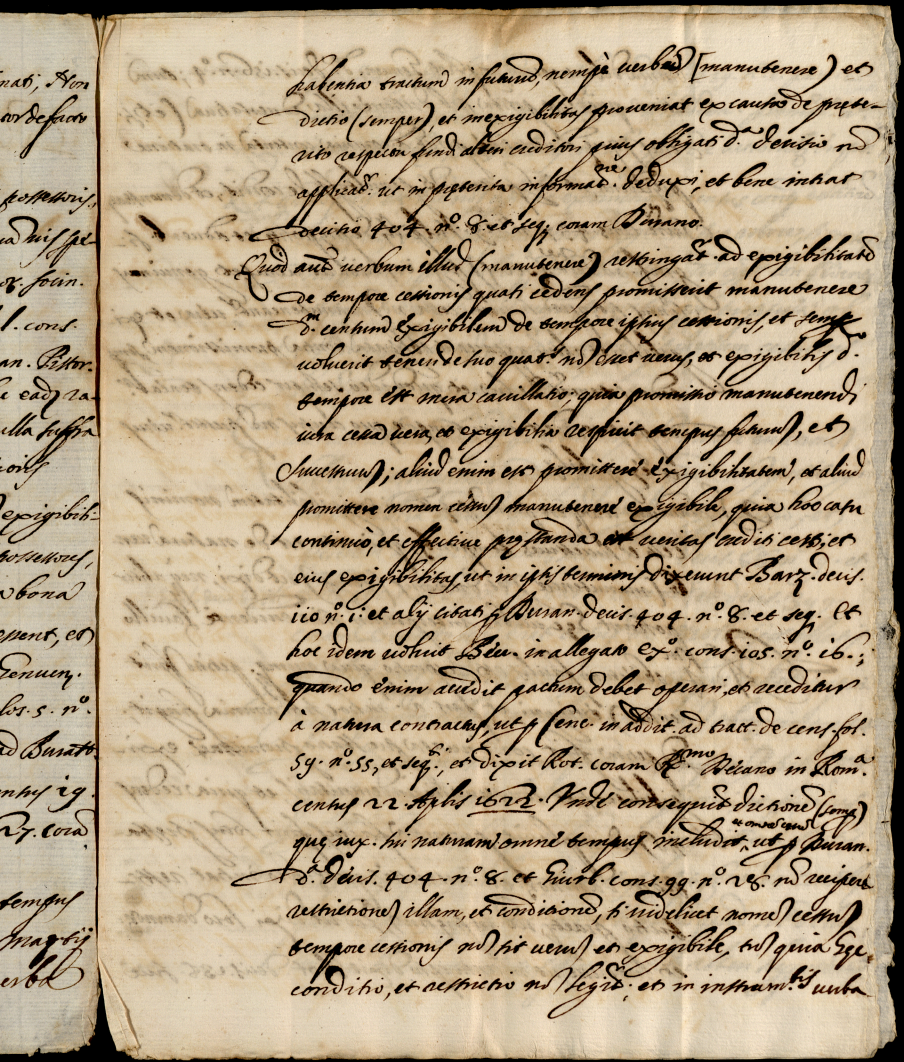 nati, Non
tor de facto
possessoris,
l. cons.
exigibili-
possessoris,
bona
essent, et
los. 5. nº.
ad Buratt.
27. corā
tempus
martij
habentia tractum in futurū, nempè verbū (manutenere) et
dictio (semper), et inexigibilitas proveniat ex causa de pręte-
rito respectu fundi alteri creditori prius obligati dª. decisio nō
applicat.r ut in pręterita informat.ne deduxi, et bene intrat
decisio 404. nº. 8. et seq. coram Burano.
Quod autē verbum illud (manutenere) restringat.r ad exigibilitatē
de tempore cessionis quasi cedens promisserit manutenere
d.m centum exigibilem de tempore ipsius cessionis, et
voluerit teneri de suo quat.s nō esset verus, et exigibilis dº.
tempore est mera cavillatio; quia promissio manutenendi
iura cessa vera, et exigibilia respicit tempus futurū, et
successivū; aliud enim est promittere exigibilitatem, et aliud
promittere nomen cessū manutenere exigibile, quia hoc casu
continuò, et effective pręstanda est veritas crediti cessi, et
eius exigibilitas, ut in istis terminis dixerunt Barz. decis.
110 nº. 1: et alij citati p Buran. decis. 404. nº. 8. et seq. Et
hoc idem voluit in allegato cons. 105. nº. 16.;
quando enim accidit pactum debet operari, et receditur
à natura contractus, ut p Cenc. in addit. ad tract. de cens. fol.
59. nº. 55, et seq., et dixit Rot. coram R.mo in Romª.
census 22. Aplis 1622. Undè consequit.r dictionē (semp)
quę iux. sui naturam omnē tempus includit, ut p Buran.
dª. decis. 404. nº. 8. et Giurb. cons. 99. nº. 28. nō recipere
restrictionē illam, et conditionē, si videlicet nomē cessū
tempore cessionis nō sit verū et exigibile, tū quia hęc
conditio, et restrictio nō legit.r, et in instrum.tis verba